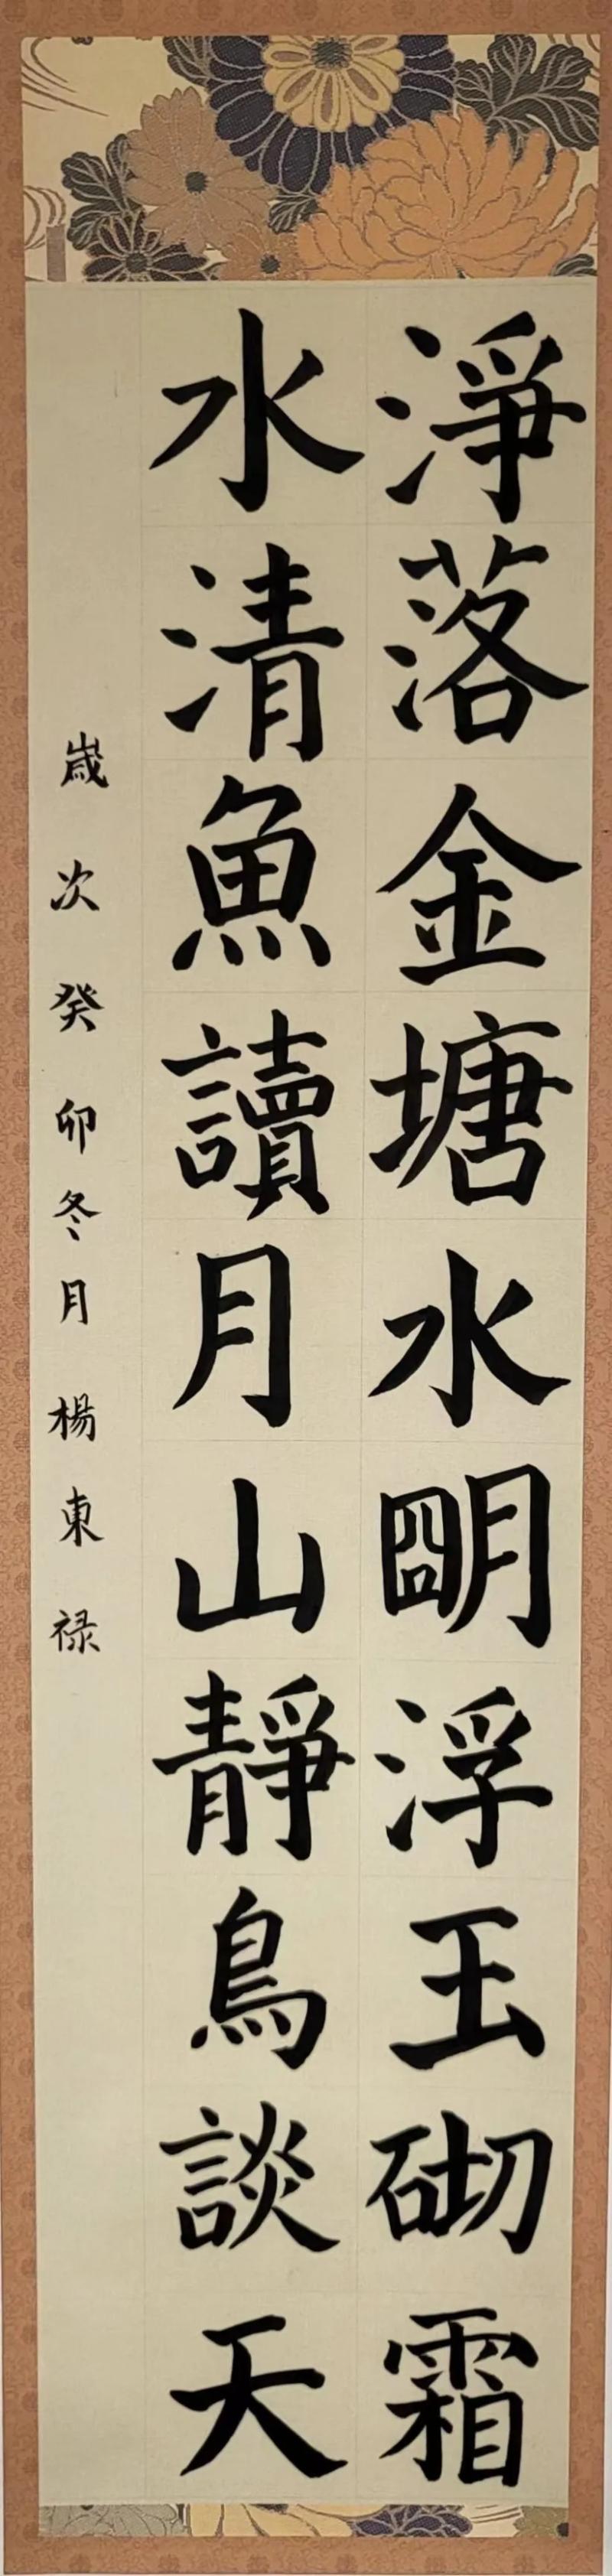 淨落金塘水朙浮玉砌霜
水清魚讀月山靜鳥談天
嵗次癸卯冬月楊東禄